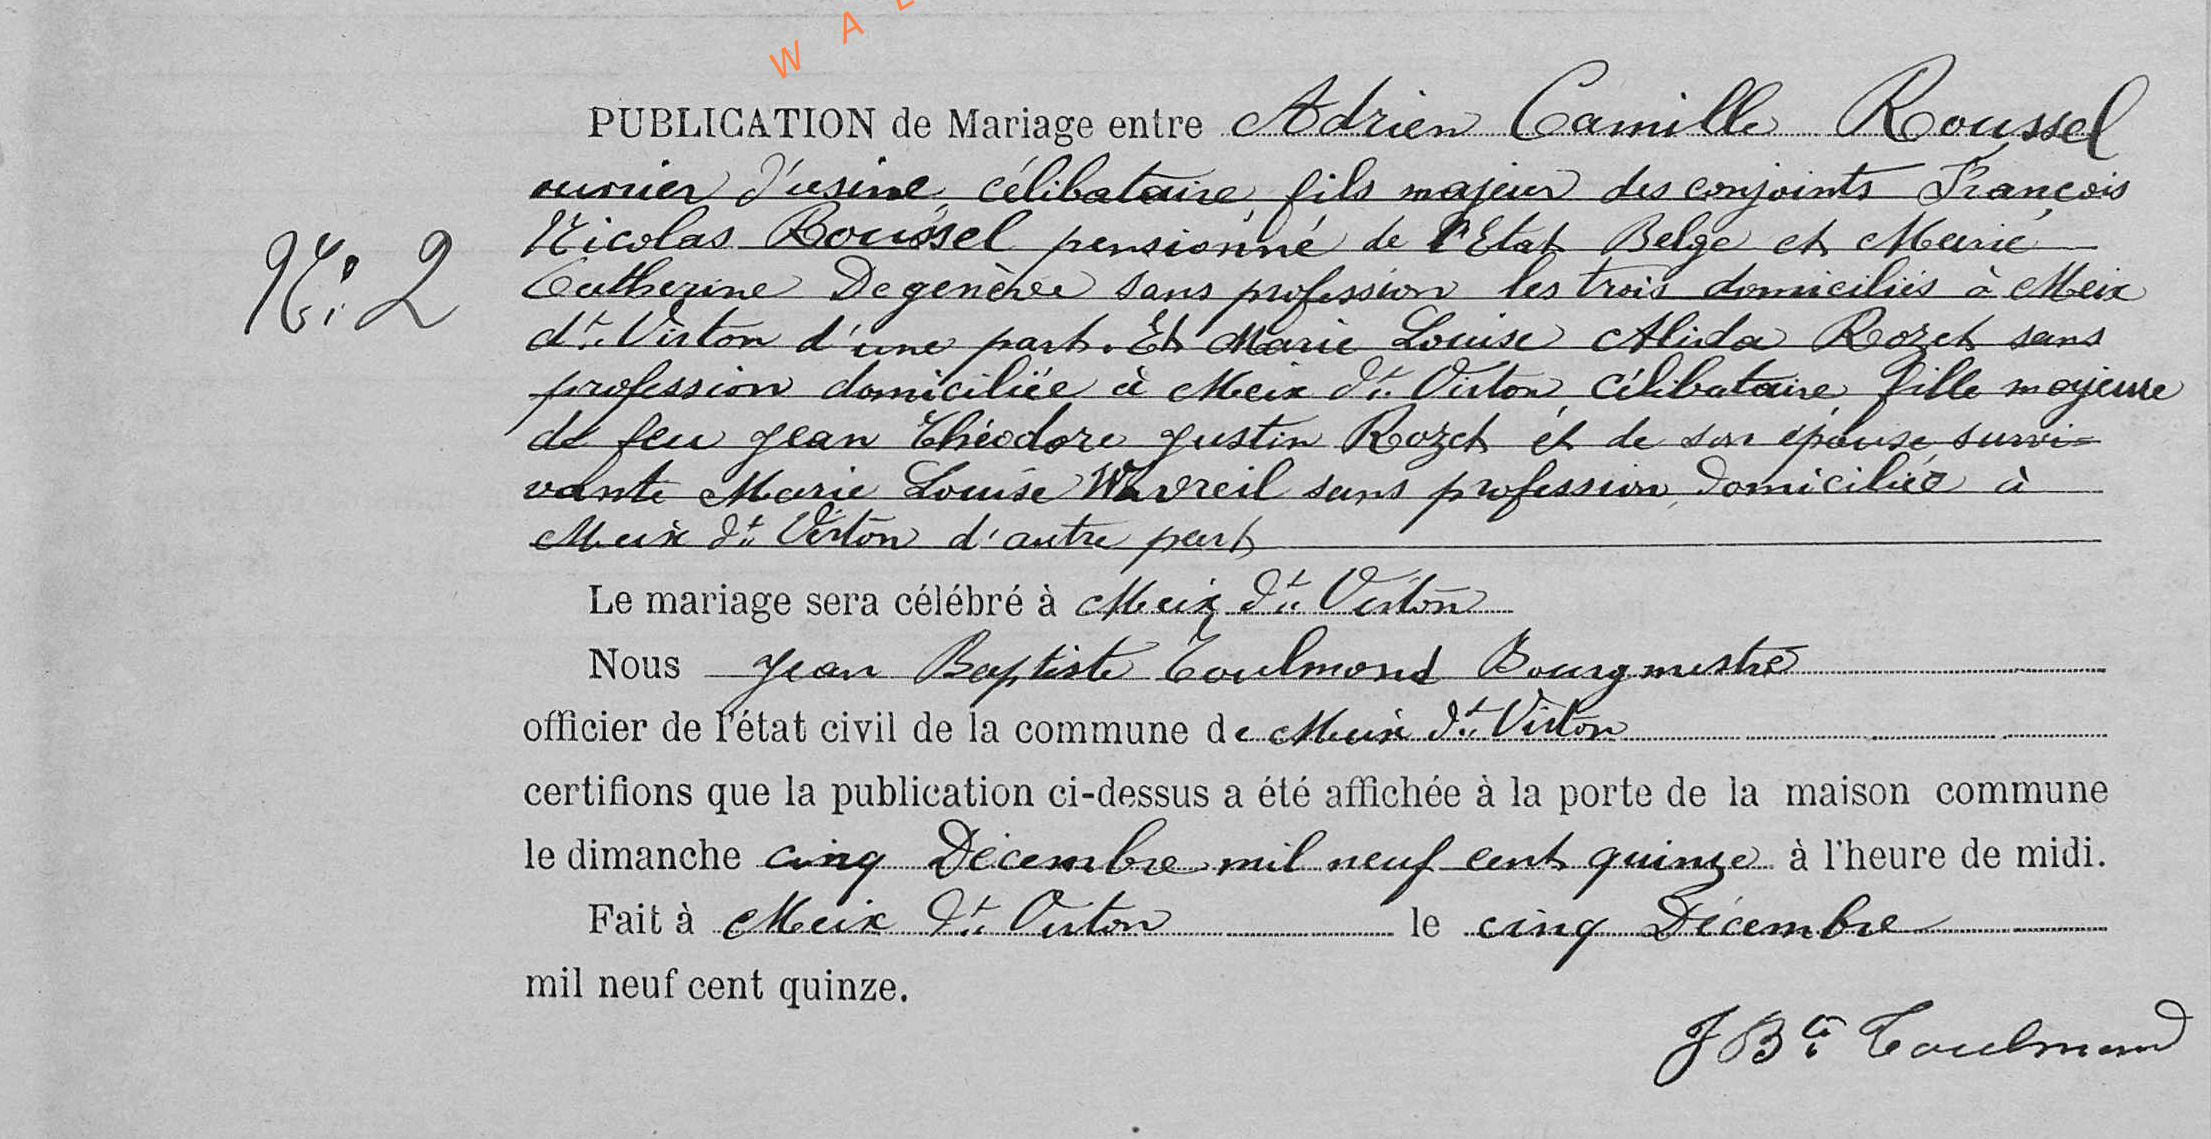 W A L
PUBLICATION de Mariage entre Adrien Camille Roussel
ouvrier d'usine, célibataire, fils majeur des conjoints François
Nicolas Roussel pensionné de l'Etat Belge et Marie
Catherine Degenève sans profession les trois domiciliés à Meix
N° 2
dt. Virton d'une part. Et Marie Louise Alida Rozet sans
profession domiciliée à Meix dt. Virton, célibataire, fille majeure
de feu Jean Théodore Justin Rozet et de son épouse survi-
vante Marie Louise Wavreil sans profession, domiciliée à
Meix dt. Virton d'autre part
Le mariage sera célébré à Meix dt. Virton
Nous Jean Baptiste Toulmond Bourgmestre
officier de l'état civil de la commune de Meix dt. Virton
certifions que la publication ci-dessus a été affichée à la porte de la maison commune
le dimanche cinq Décembre mil neuf cent quinze à l'heure de midi.
Fait à Meix dt. Virton le cinq Décembre
mil neuf cent quinze.
J Bte Toulmond